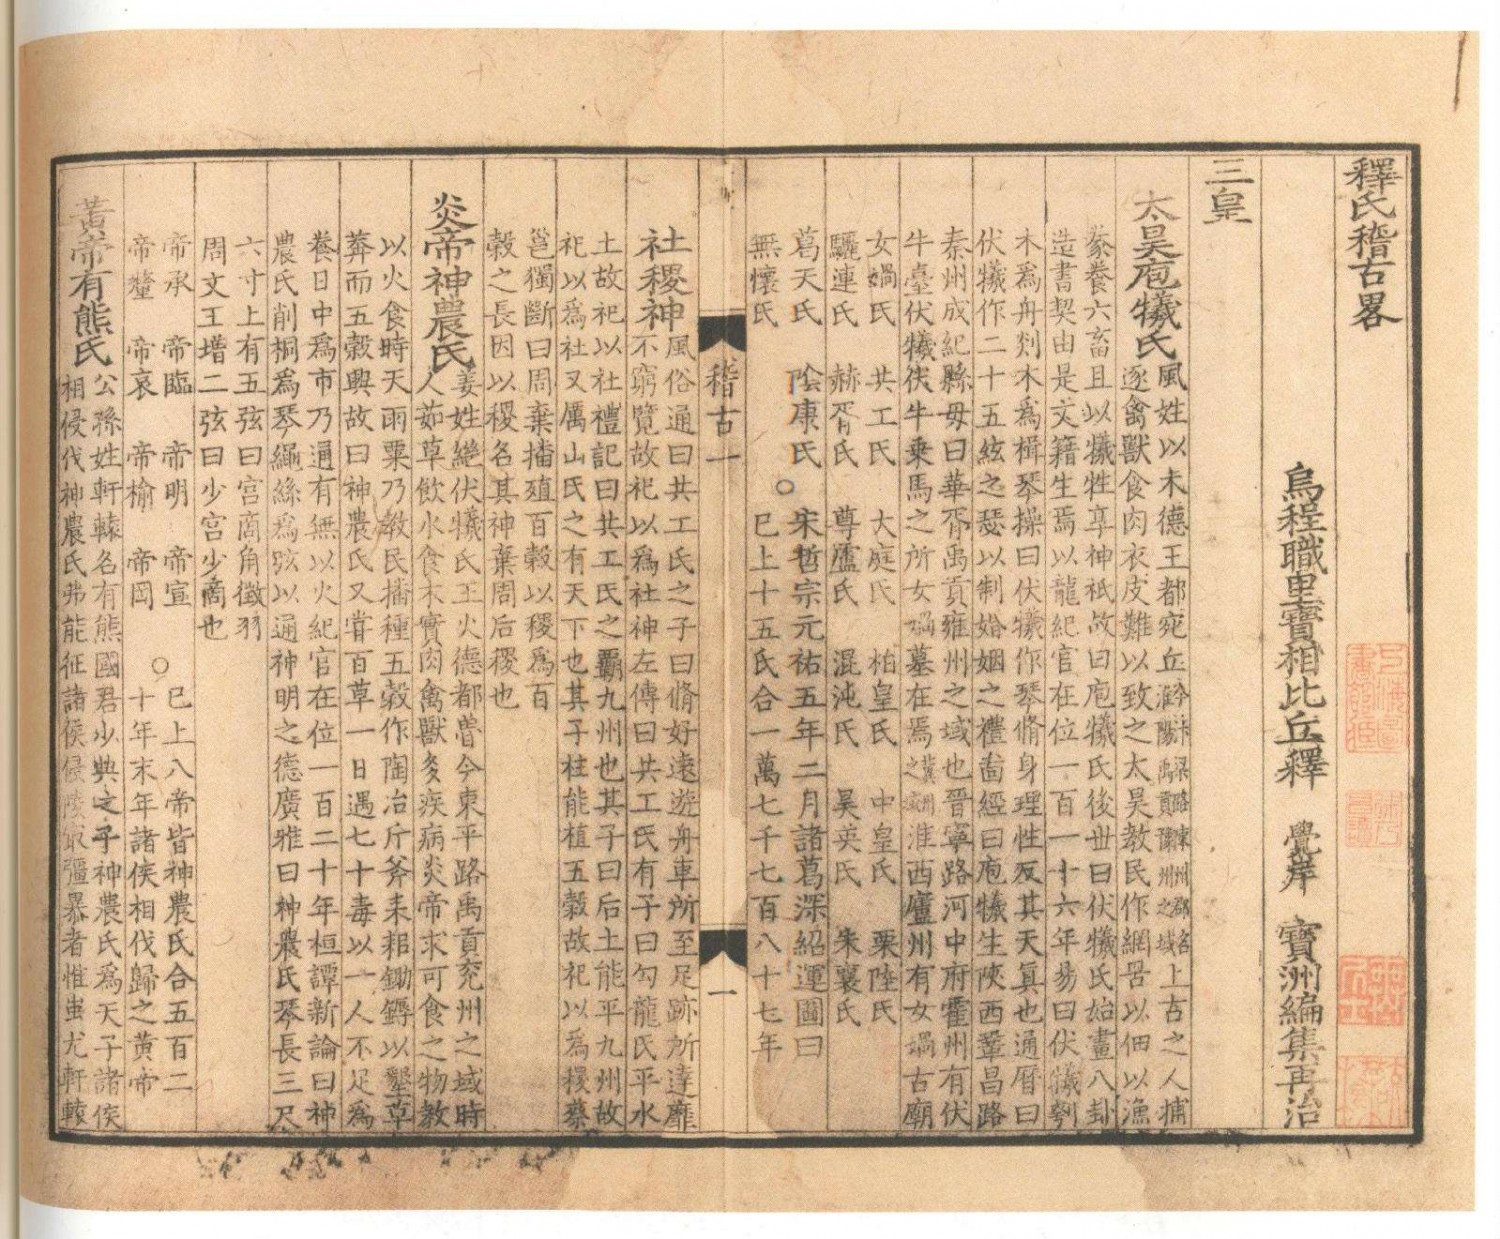 釋氏稽古畧
烏程職里寶相比丘釋 覺岸 寶洲編集再治
三皇
太昊庖犧氏
風姓以木德王都宛丘今汴梁路陳州郡名淮陽禹貢豫州之域上古之人捕
逐禽獸食肉衣皮難以致之太昊教民作網罟以佃以漁
豢養六畜且以犧牲享神祇故曰庖犧氏後世曰伏犧氏始畫八卦
造書契由是文籍生焉以龍紀官在位一百一十六年易曰伏犧刳
木爲舟剡木爲楫琴操曰伏犧作琴脩身理性反其天真也通曆曰
伏犧作二十五絃之瑟以制婚姻之禮啚經曰庖犧生陝西鞏昌路
秦州成紀縣母曰華胥禹貢雍州之域也晉寧路河中府霍州有伏
牛臺伏犧伏牛乗馬之所女媧墓在焉冀州之域淮西廬州有女媧古廟
女媧氏 共工氏 大庭氏 柏皇氏 中皇氏 栗陸氏
驪連氏 赫胥氏 尊盧氏 混沌氏 昊英氏 朱襄氏
葛天氏 陰康氏○宋哲宗元祐五年二月諸葛深紹運圖曰
無懷氏 已上十五氏合一萬七千七百八十七年
稽古一 一
社稷神
風俗通曰共工氏之子曰脩好遠遊舟車所至足跡所達靡
不窮覽故祀以爲社神左傳曰共工氏有子曰勾龍氏平水
土故祀以社禮記曰共工氏之覇九州也其子曰后土能平九州故
祀以爲社又厲山氏之有天下也其子柱能植五穀故祀以爲稷蔡
邕獨斷曰周棄播殖百穀以稷爲百
穀之長因以稷名其神棄周后稷也
炎帝神農氏
姜姓繼伏犧氏王火德都魯今東平路禹貢兖州之域時
人茹草飲水食木實肉禽獸多疾病炎帝求可食之物教
以火食時天雨粟乃教民播種五穀作陶冶斤斧耒耜鋤鎒以墾草
莽而五穀興故曰神農氏又甞百草一日遇七十毒以一人不足爲
養日中爲市乃通有無以火紀官在位一百二十年桓譚新論曰神
農氏削桐爲琴繩絲爲弦以通神明之德廣雅曰神農氏琴長三尺
六寸上有五弦曰宮商角徵羽
周文王增二弦曰少宮少商也
帝承 帝臨 帝明 帝宣 ○已上八帝皆神農氏合五百二
帝釐 帝哀 帝榆 帝岡 十年末年諸侯相伐歸之黃帝
黃帝有熊氏
公孫姓軒轅名有熊國君少典之子神農氏爲天子諸侯
相侵伐神農氏弗能征諸侯侵陵㝡彊暴者惟蚩尤軒轅